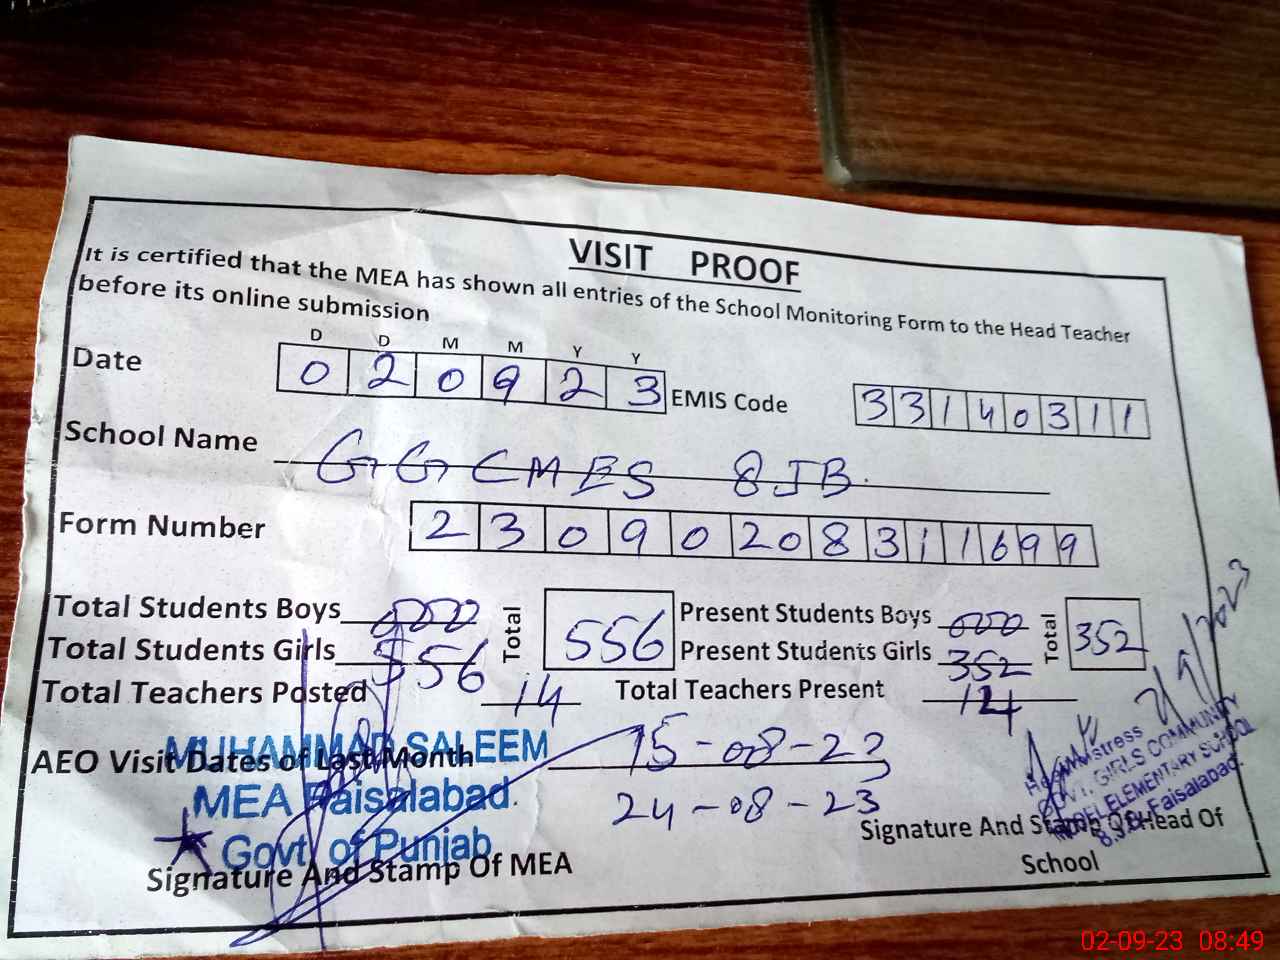 VISIT PROOF
It is certified that the MEA has shown all entries of the School Monitoring Form to the Head Teacher
before its online submission
D D M M Y Y
Date 0 2 0 9 2 3 EMIS Code 3 3 1 4 0 3 1 1
School Name GGCMES 8JB.
Form Number 2 3 0 9 0 2 0 8 3 1 1 6 9 9
Total Students Boys 000 Total 556 Present Students Boys 000 Total 352
Total Students Girls 556 Present Students Girls 352
Total Teachers Posted 14 Total Teachers Present 14
AEO Visit Dates of Last Month 15-08-23
24-08-23
MUHAMMAD SALEEM
MEA Faisalabad.
Govt. of Punjab
Signature And Stamp Of MEA
2/9/2023
Headmistress
GOVT. GIRLS COMMUNITY
MODEL ELEMENTARY SCHOOL
8.J.B. Faisalabad.
Signature And Stamp Of Head Of
School
02-09-23 08:49